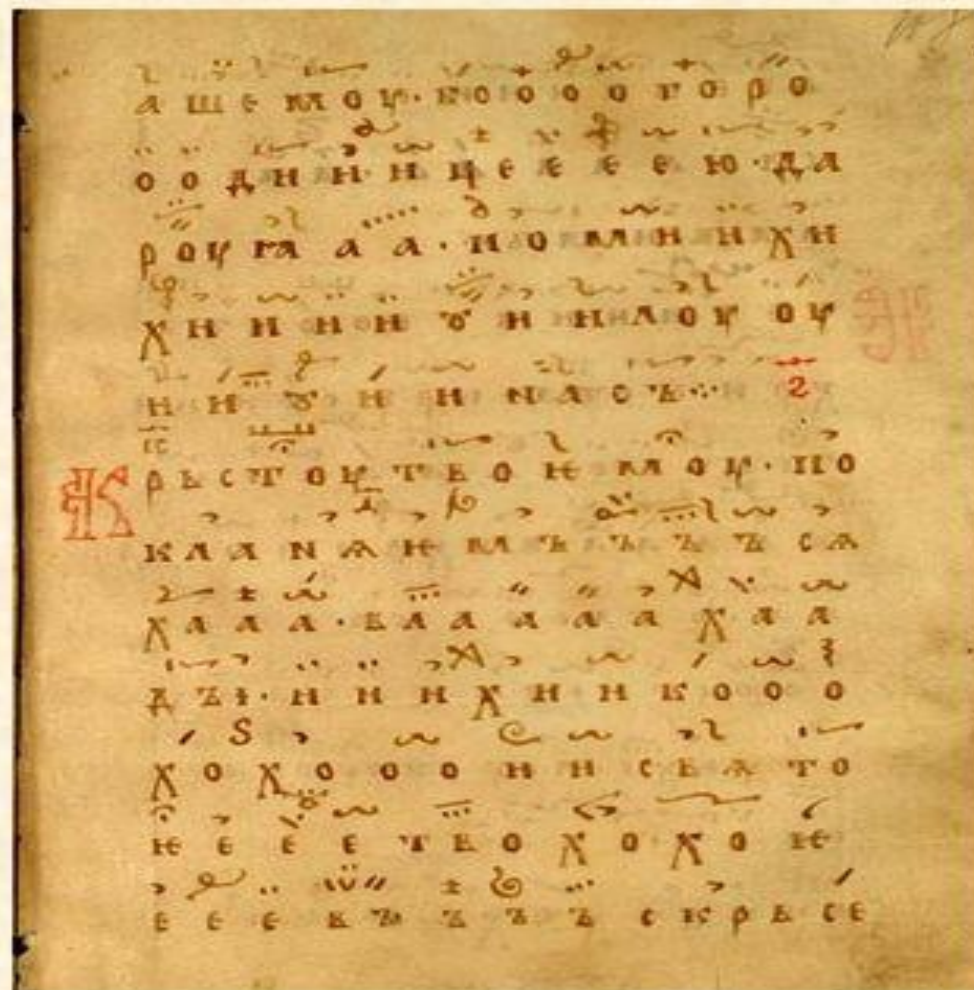 ашемоу·боооогоро
оодии·ицеееею·да
роуꙗаа·помииихи
хиииꙋиилоуоу
ииꙋиинасъ⁘
рьстоутвоѥмоу·по
клаанѧѥмъъъъсѧ
хааа·влаааахаа
дꙑ·ииихиикооо
хохоооиисвѧто
ѥееетвохохоѥ
ееевъъъъскрьсе